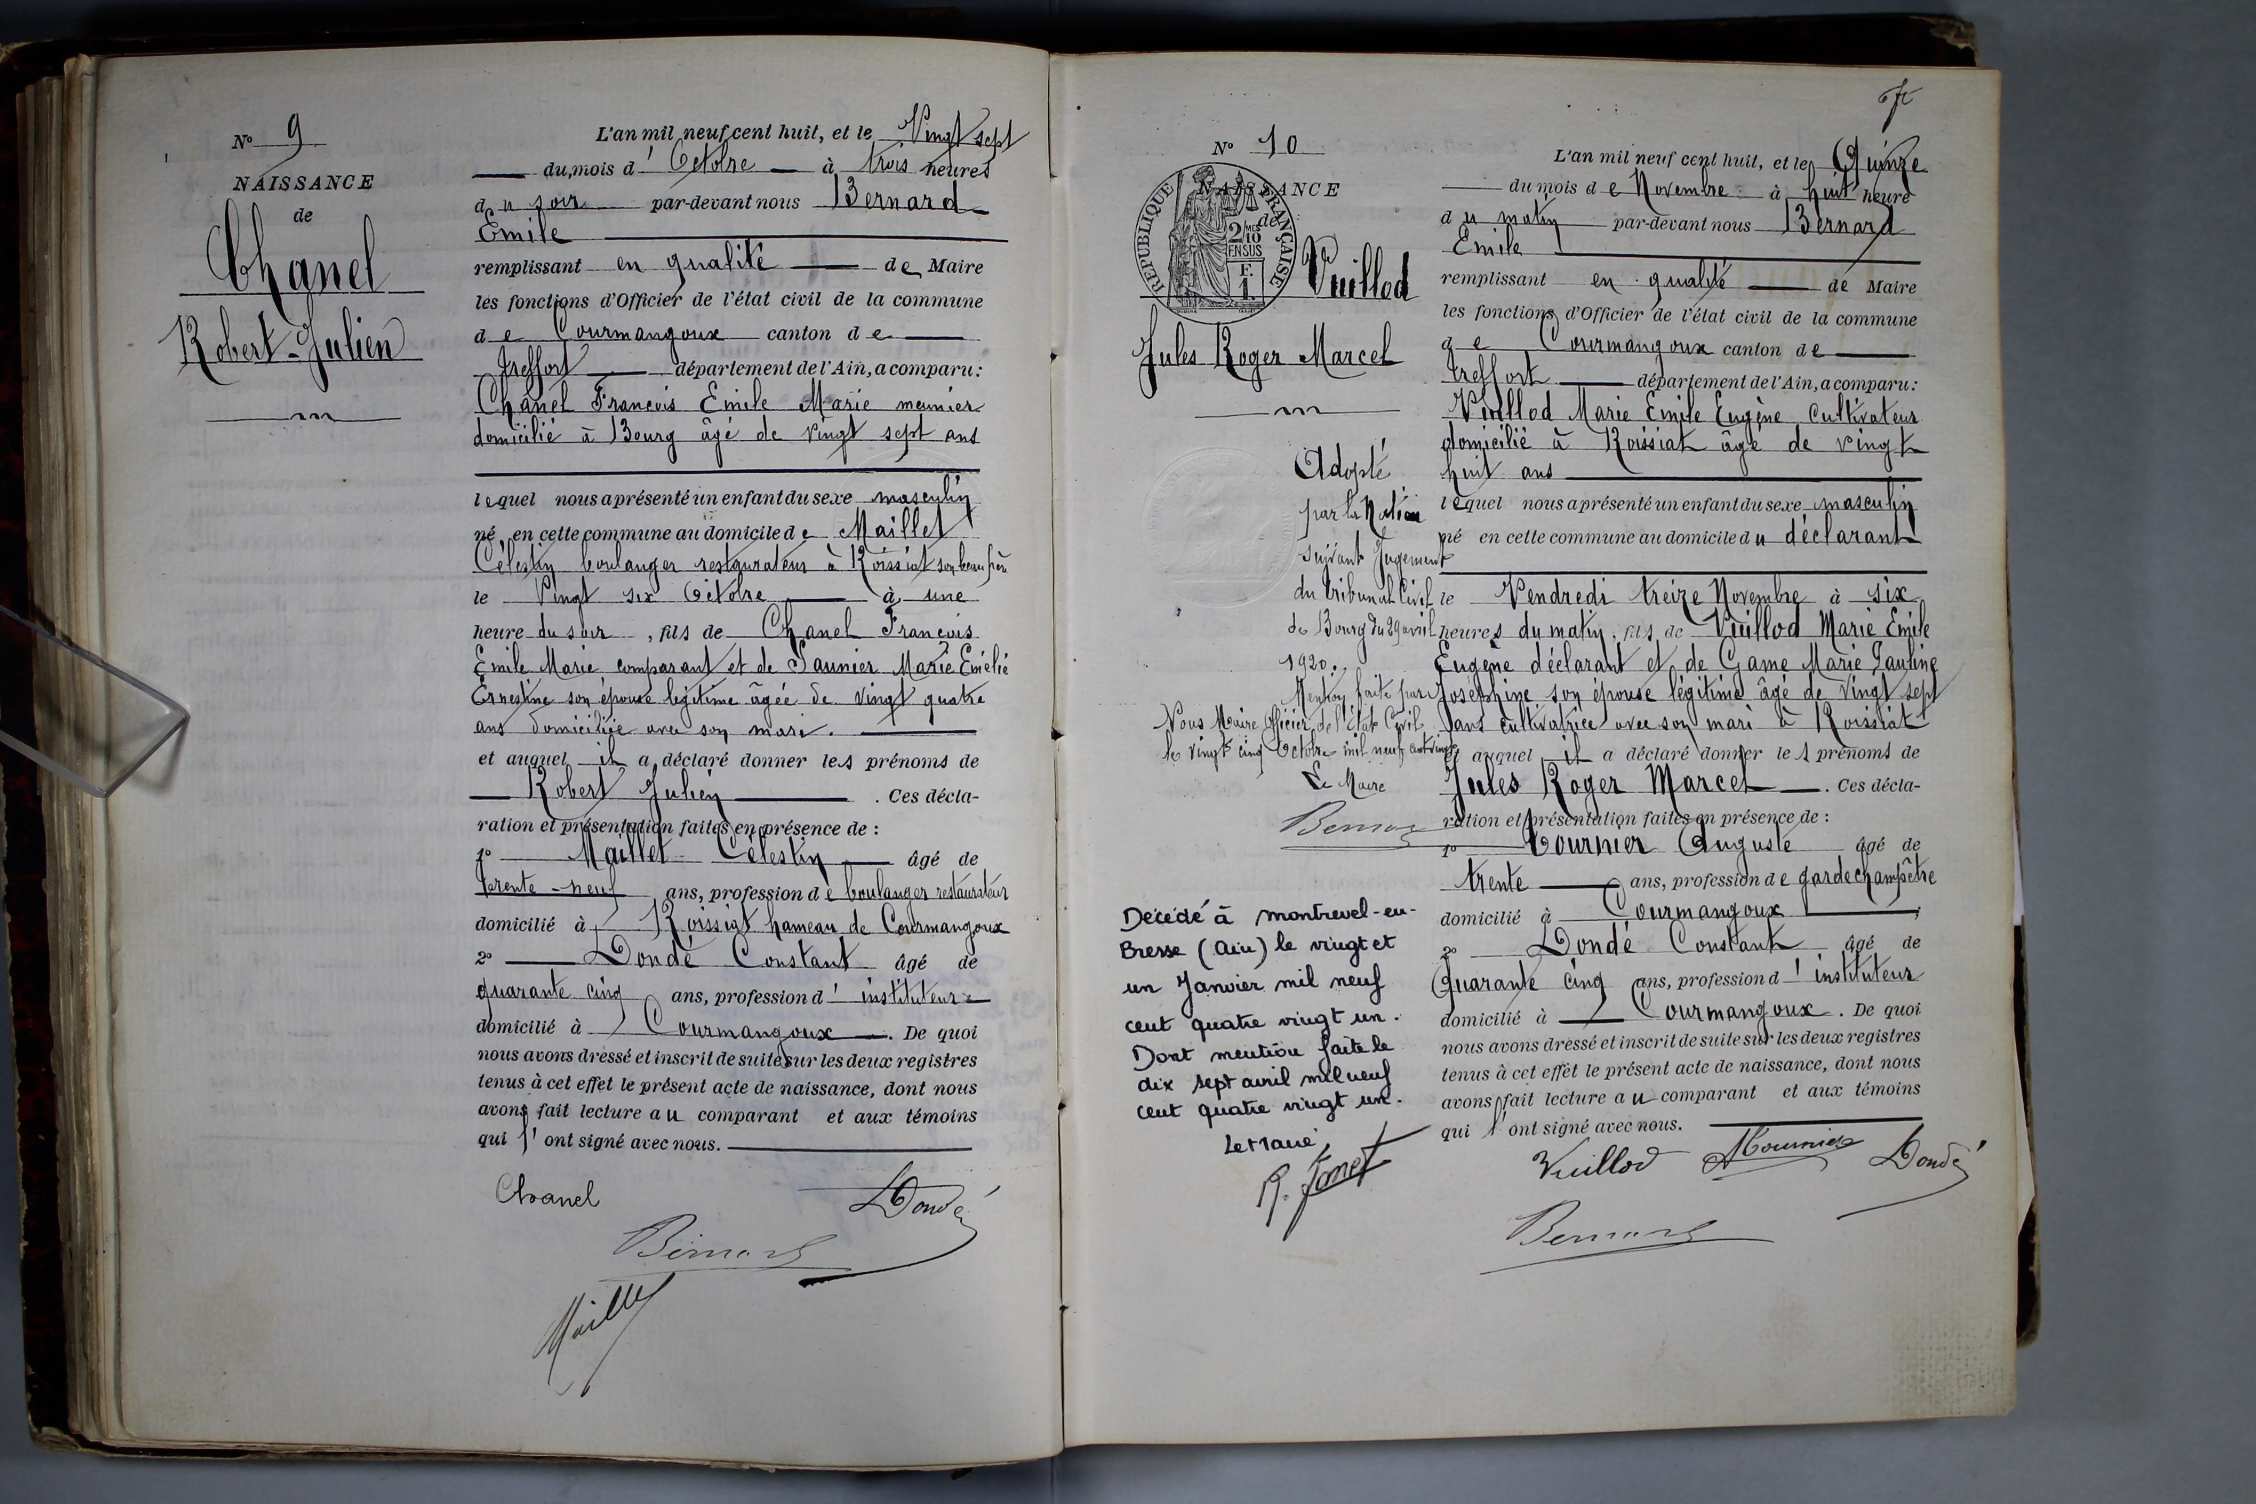 N° 9
NAISSANCE
de
Chanel
Robert-Julien
L'an mil neuf cent huit, et le Vingt sept
du mois d'Octobre à trois heures
du soir par-devant nous Bernard
Emile
remplissant en qualité de Maire
les fonctions d'Officier de l'état civil de la commune
de Courmangoux canton de
Treffort département de l'Ain, a comparu :
Chanel François Emile Marie meunier
domicilié à Bourg âgé de vingt sept ans
lequel nous a présenté un enfant du sexe masculin
né en cette commune au domicile de Maillet
Célestin boulanger restaurateur à Roissiat son beau frère
le Vingt six Octobre à une
heure du soir, fils de Chanel François
Emile Marie comparant et de Saunier Marie Emélie
Ernestine son épouse légitime âgée de vingt quatre
ans domiciliée avec son mari.
et auquel il a déclaré donner les prénoms de
Robert Julien . Ces décla-
ration et présentation faites en présence de :
1° Maillet Célestin âgé de
trente-neuf ans, profession de boulanger restaurateur
domicilié à Roissiat hameau de Courmangoux
2° Dondé Constant âgé de
quarante cinq ans, profession d'instituteur
domicilié à Courmangoux . De quoi
nous avons dressé et inscrit de suite sur les deux registres
tenus à cet effet le présent acte de naissance, dont nous
avons fait lecture au comparant et aux témoins
qui l'ont signé avec nous.
Chanel
Dondé
Bernard
Maillet
N° 10
NAISSANCE
de
RÉPUBLIQUE FRANÇAISE
2/10
EN SUS
F.
1.
Vuillod
Jules Roger Marcel
Adopté
par la Nation
suivant Jugement
du tribunal Civil
de Bourg du 29 avril
1920.
Mention faite par
Nous Maire Officier de l'État Civil
le vingt cinq Octobre mil neuf cent vingt
Le Maire
Bernard
Décédé à Montrevel-en-
Bresse (Ain) le vingt et
un Janvier mil neuf
cent quatre vingt un.
Dont mention faite le
dix sept avril mil neuf
cent quatre vingt un.
Le Maire,
L'an mil neuf cent huit, et le Quinze
du mois de Novembre à huit heure
du matin par-devant nous Bernard
Emile
remplissant en qualité de Maire
les fonctions d'Officier de l'état civil de la commune
de Courmangoux canton de
Treffort département de l'Ain, a comparu :
Vuillod Marie Emile Eugène cultivateur
domicilié à Roissiat âgé de vingt
huit ans
lequel nous a présenté un enfant du sexe masculin
né en cette commune au domicile du déclarant
le Vendredi treize Novembre à six
heures du matin, fils de Vuillod Marie Emile
Eugène déclarant et de Game Marie Pauline
Joséphine son épouse légitime âgé de vingt sept
ans cultivatrice avec son mari à Roissiat
et auquel il a déclaré donner les prénoms de
Jules Roger Marcel . Ces décla-
ration et présentation faites en présence de :
1° Tournier Auguste âgé de
trente ans, profession de garde champêtre
domicilié à Courmangoux ;
2° Dondé Constant âgé de
Quarante cinq ans, profession d'instituteur
domicilié à Courmangoux . De quoi
nous avons dressé et inscrit de suite sur les deux registres
tenus à cet effet le présent acte de naissance, dont nous
avons fait lecture au comparant et aux témoins
qui l'ont signé avec nous.
Vuillod
Tournier
Dondé
Bernard